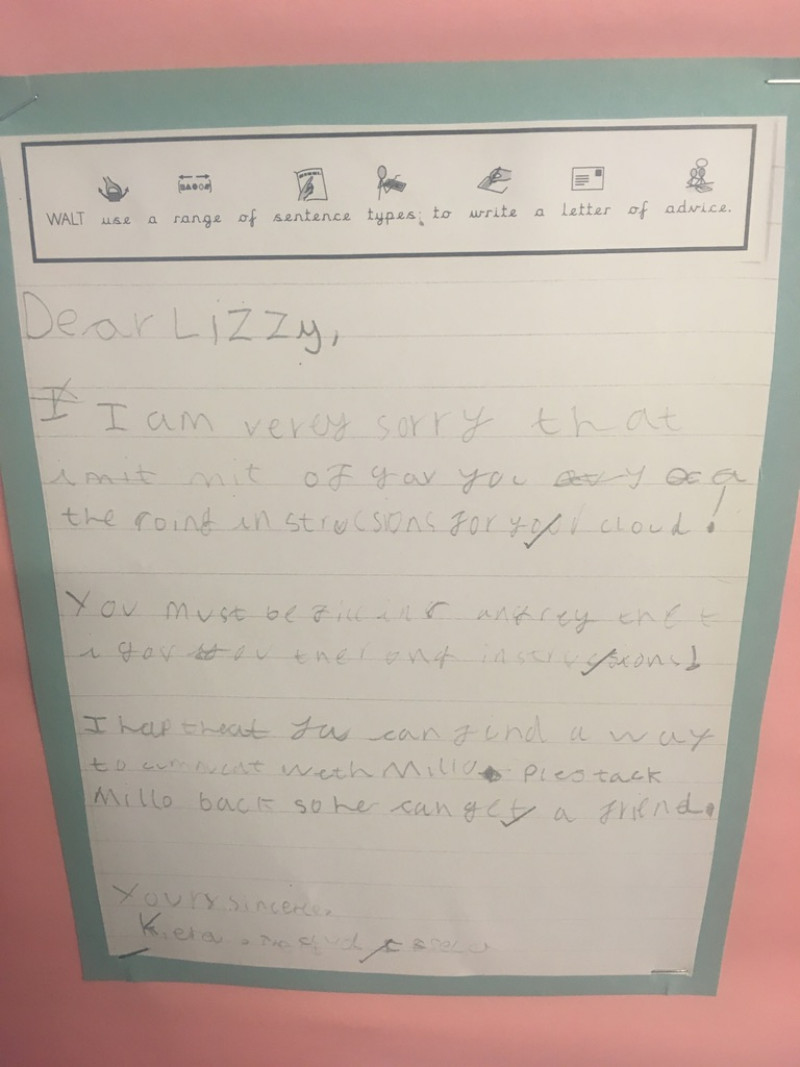 WALT use a range of sentence types; to write a letter of advice.
Dear Lizzy,
I I am verey sorry that
imit mit of gav you
the roinf instrucsions for your cloud!
You must be angrey
i gav you instrucsions!
I hap theat you can find a way
to with Millo Pleo tack
Millo back so he can get a friend.
Yours sincerle,
Kiera